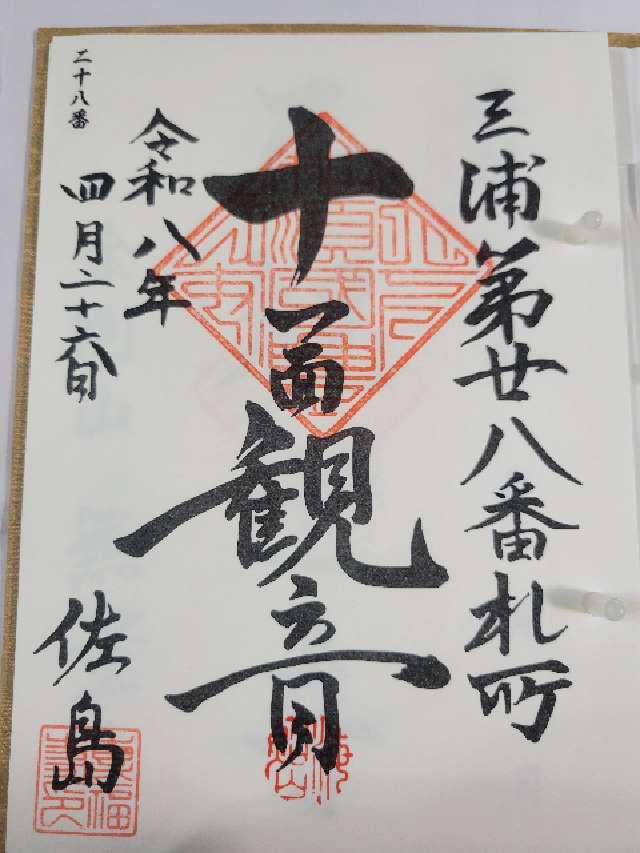 三浦第廿八番札所
十一面観音
令和八年
四月二十六日
二十八番
佐島